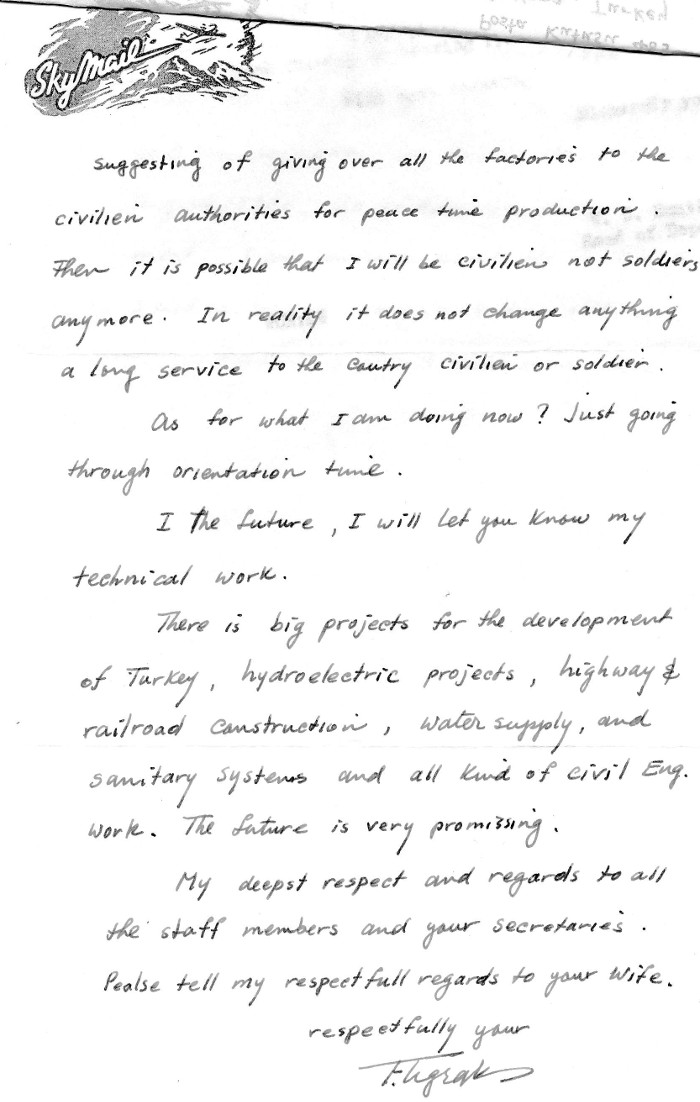 Turkey
Posta Kutusu
Sky Mail
suggesting of giving over all the factories to the
civilien authorities for peace time production.
Then it is possible that I will be civilien not soldiers
anymore. In reality it does not change anything
a long service to the cautry civilien or soldier.
As for what I am doing now? Just going
through orientation time.
I the future, I will let you know my
technical work.
There is big projects for the development
of Turkey, hydroelectric projects, highway &
railroad construction, water supply, and
sanitary systems and all kind of civil Eng.
work. The future is very promissing.
My deepst respect and regards to all
the staff members and your secretaries.
Pealse tell my respectfull regards to your wife.
respectfully your